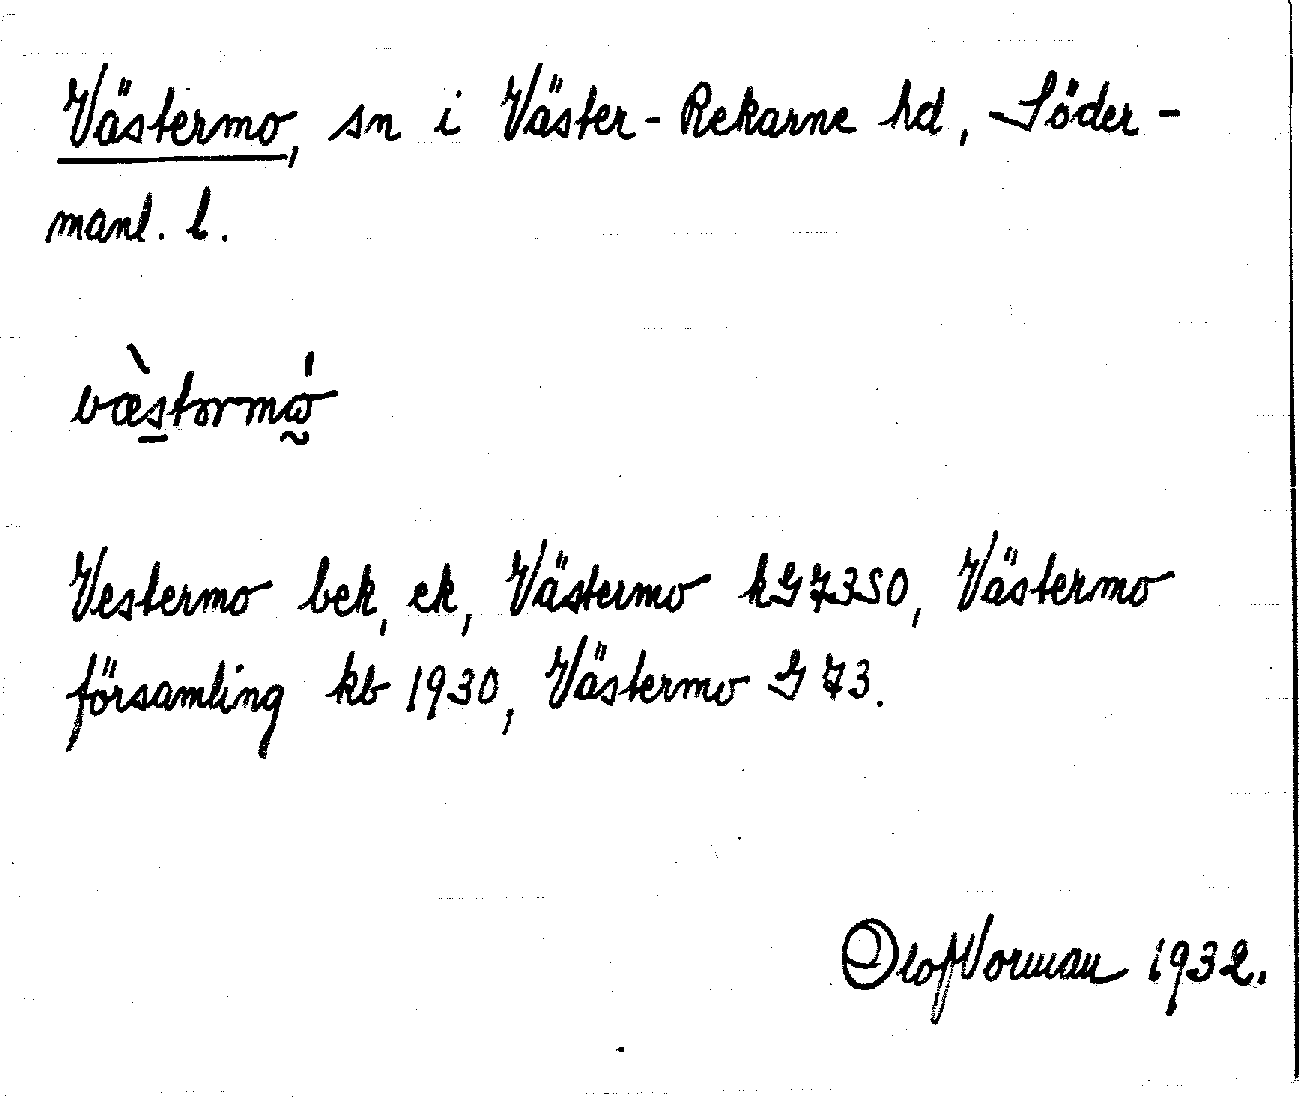 Västermo, sn i Väster-Rekarne hd, Söder-
manl. l.
væ̀stərmω̍
Vestermo bek, ek, Västermo kG7350, Västermo
församling kb 1930, Västermo G 73.
Olof Norman 1932.